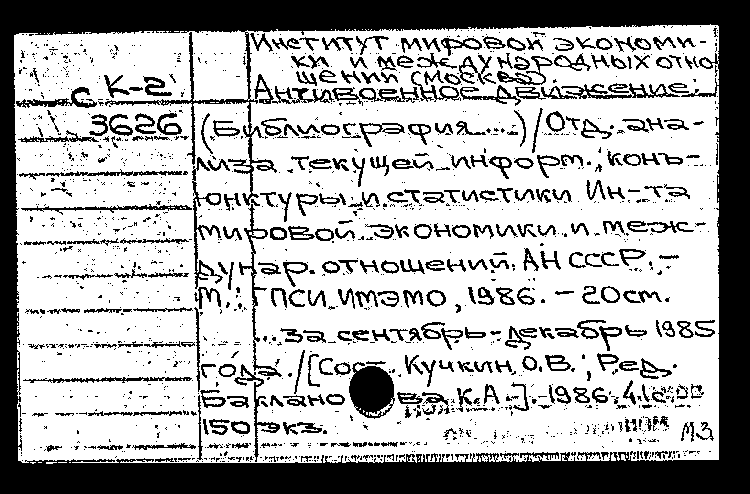 Институт мировой экономи-
ки и международных отно
шений (Москва).
С К-2
Антивоенное движение:
3626
(Библиография ...) / Отд. ана-
лиза текущей информ., конъ-
юнктуры и статистики Ин-та
мировой экономики и меж-
дунар. отношений АН СССР. -
М.: ГПСИ ИМЭМО, 1986. - 20 см.
... за сентябрь-декабрь 1985
года. / [Сост. Кучкин О.В.; Ред.
Баклано ва К.А.]. 1986. 41 с.
150 экз.
М.З.